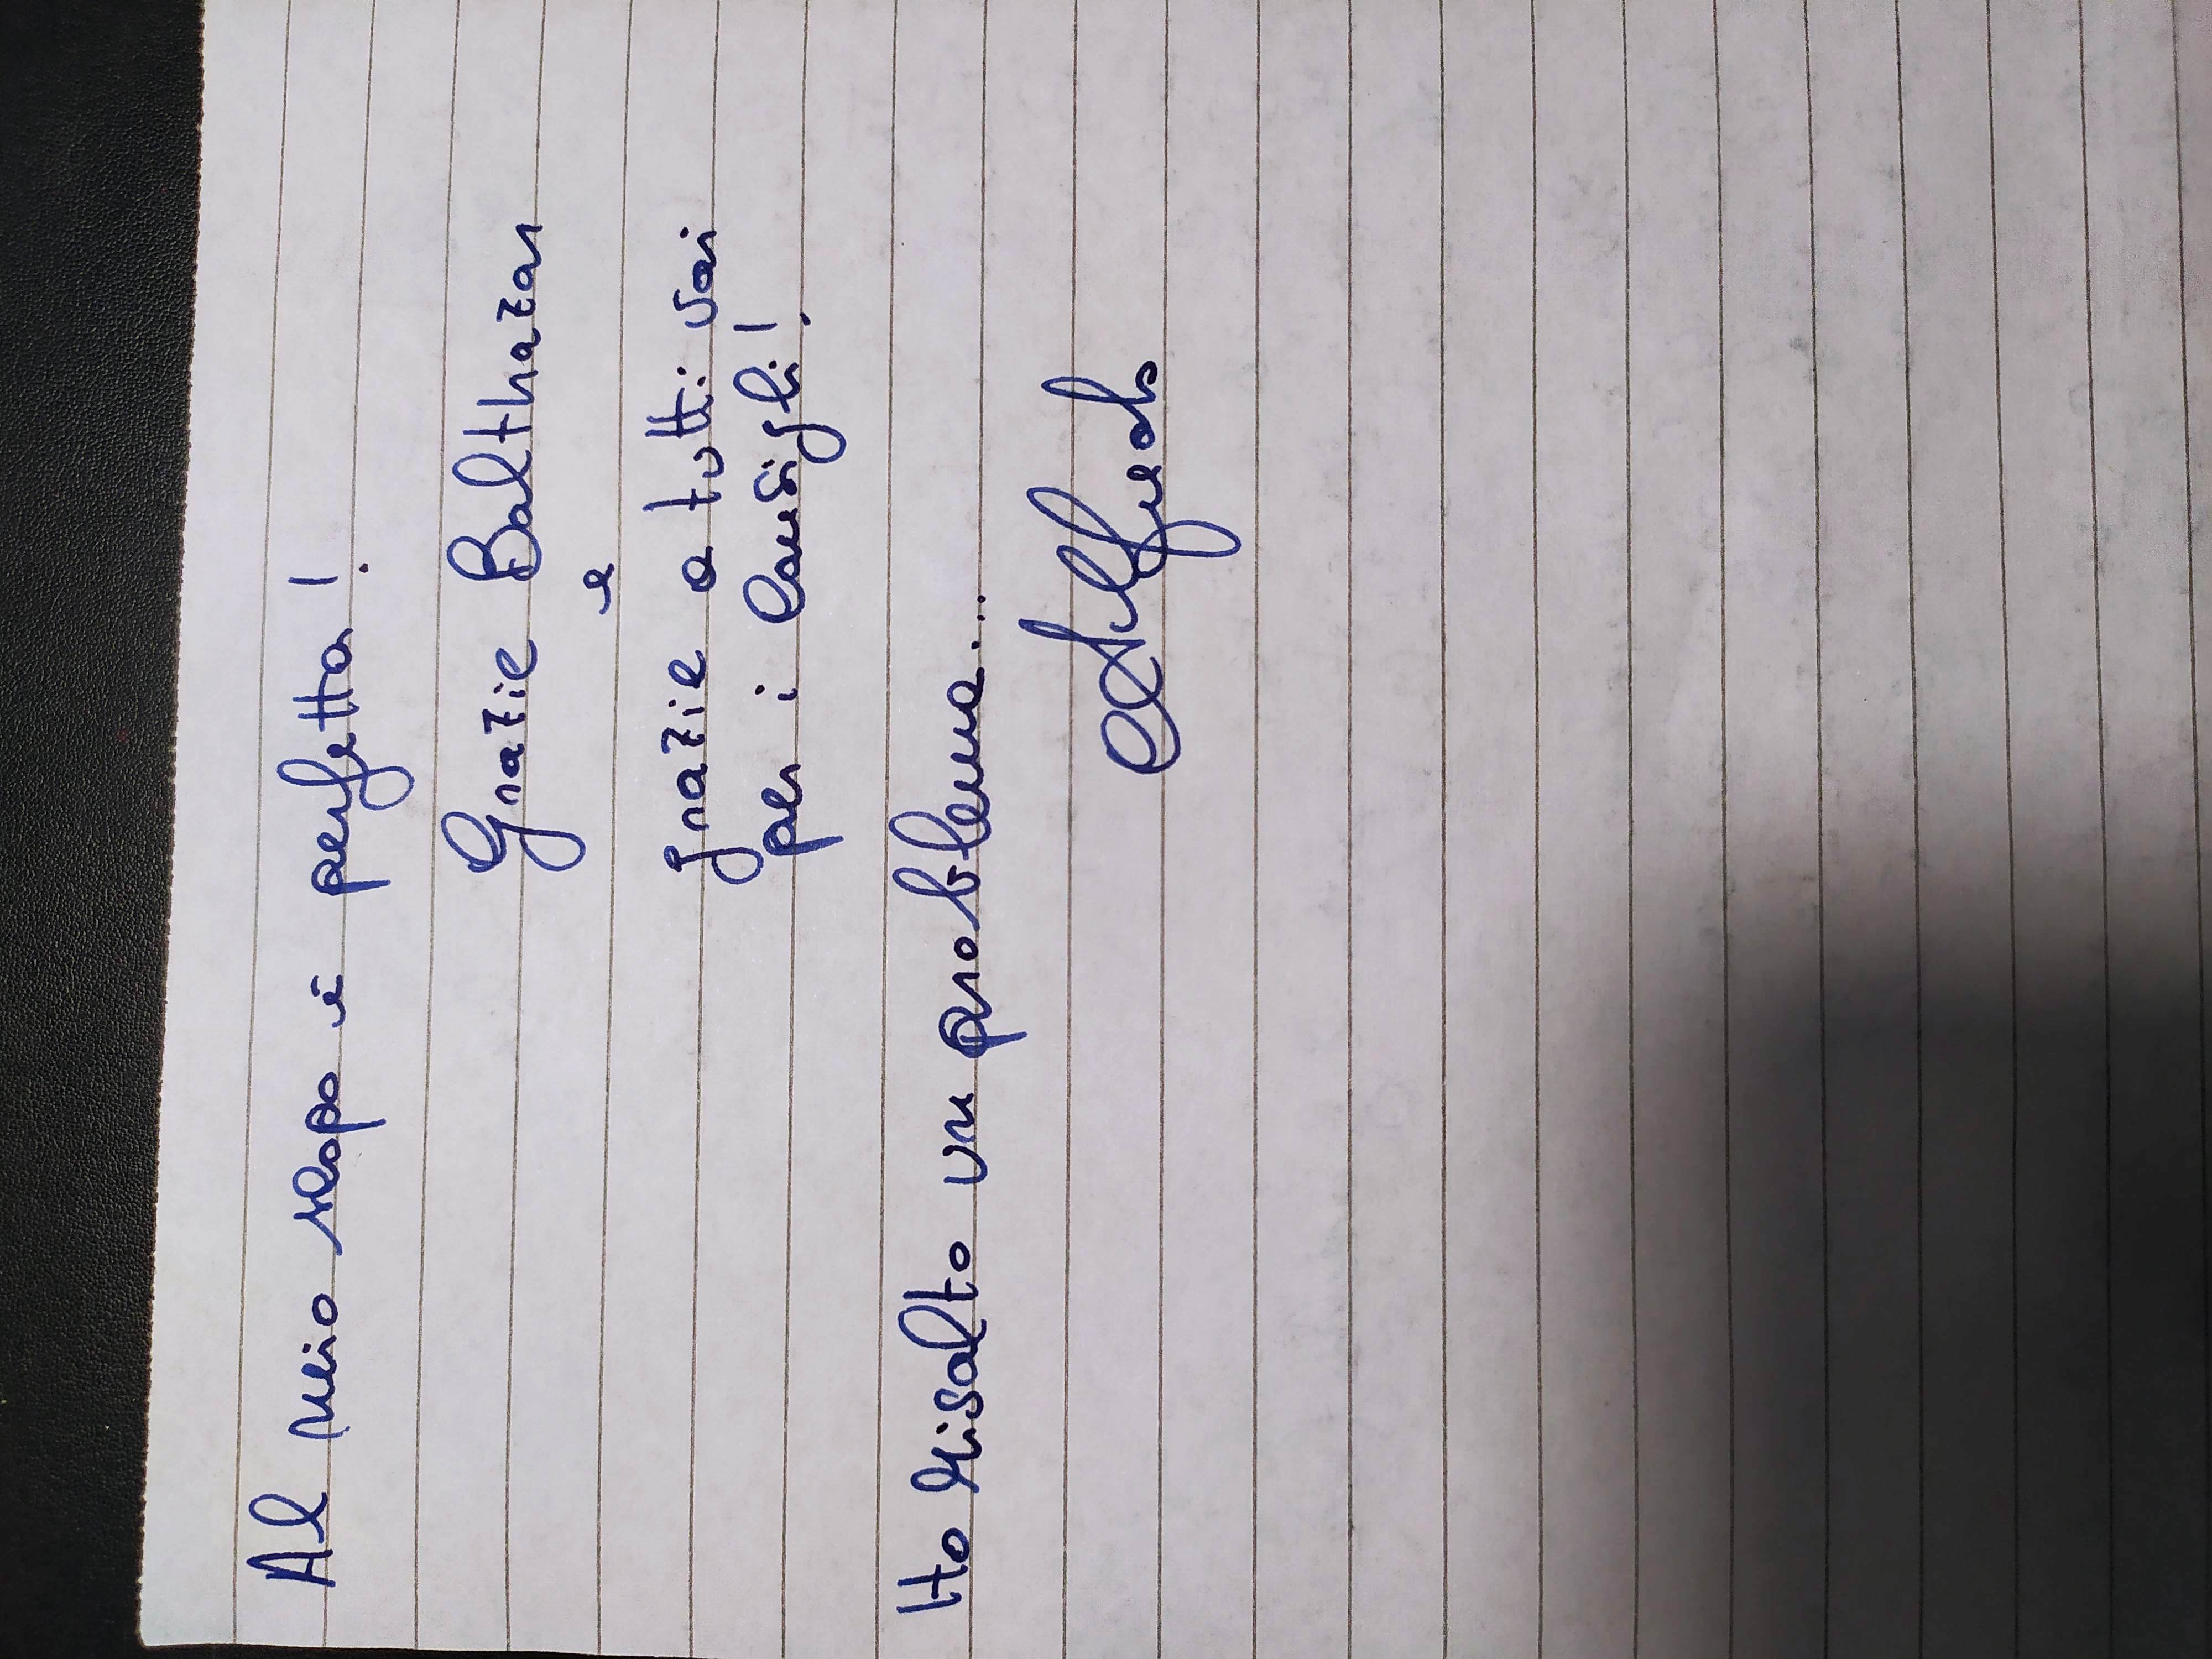 Al mio scopo è perfetta!
Grazie Balthazar
e
grazie a tutti voi
per i consigli!
Ho risolto un problema...
Alfredo